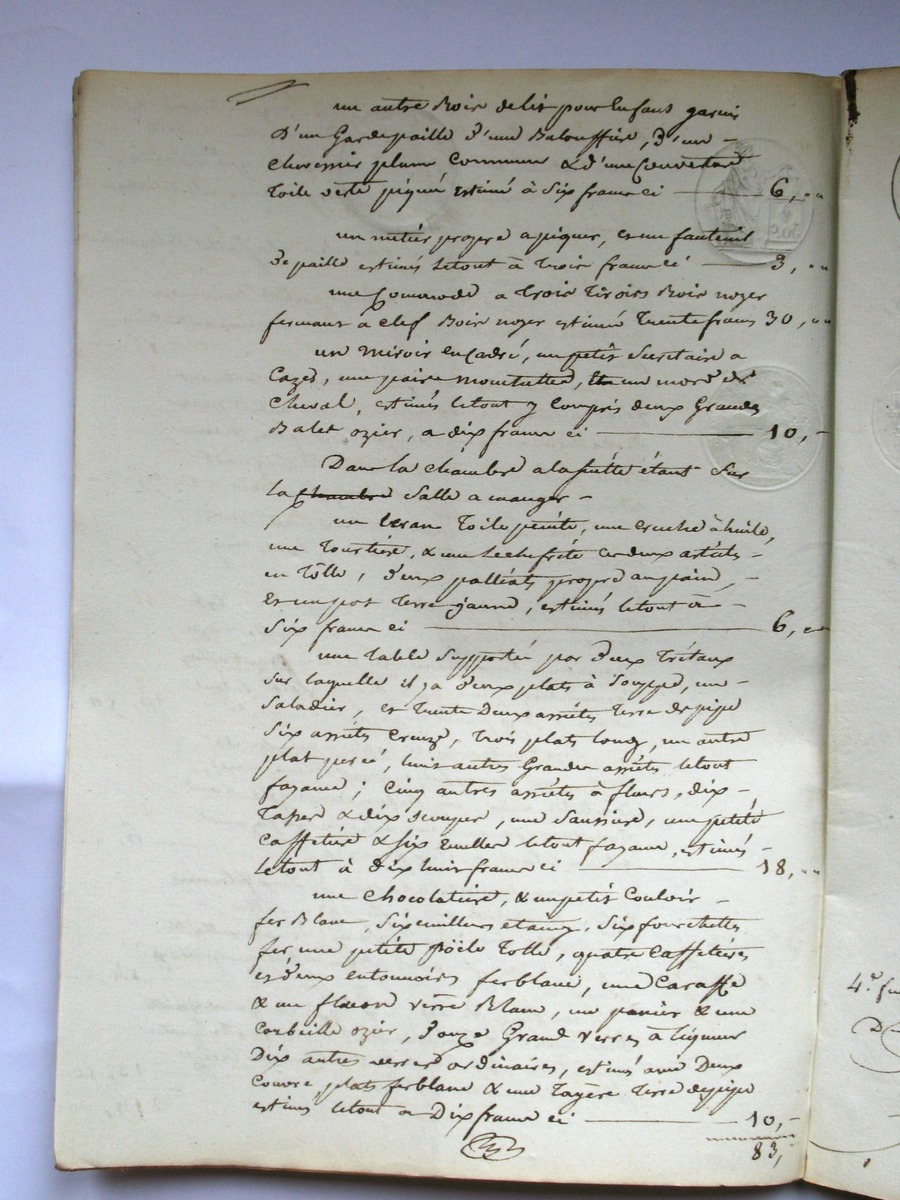 un autre Bois de lit pour Enfant garni
D'un Gardepaille d'une Balouffiere, d'un
chevessier plume Commun & d'une Couverture
Toile verte piqué estimé à Six francs ci 6, "
un métier propre a piquer, et un fauteuil
de paille estimés letout à Trois francs ci 3, "
une Commode a Trois Tiroirs Bois noyer
fermant à clef Bois noyer estimée Trente francs 30, "
un miroir encadré, un petit Secretaire a
Cazes, une paire mouchettes, un mord de
Cheval, estimés letout y Compris deux Grandes
ozier, a dix francs ci 10, "
Dans la chambre a la suitte étant sur
la chambre Salle a manger
un Ecran Toile peinte, une cruche à huile,
une Tourtiere, & une Lechefrite ces deux articles
en Tôlle, deux palliats propre au pain,
Et un pot Terre jaune, estimés letout à
Six francs ci 6, "
une table supportée par deux Trétaux
sur laquelle il y a deux plats à Souppe, un
Saladier, et Trente Deux assiétes Terre de pipe
Six assiétes Creuze, Trois plats long, un autre
plat percé, huit autres Grandes assiétes letout
fayance; Cinq autres assiétes à fleurs, dix
Tasses & dix Scoupes, une Saussiere, une petite
Caffetiere & Six letout fayance, estimés
letout à dix huit francs ci 18, "
une Chocolatiere, & un petit Couloir
fer Blanc, Six cuilliers etaing, Six fourchettes
fer une petite Poële Tolle, quatre Caffetieres
et deux entonnoirs ferblanc, une Caraffe
& un flacon verre Blanc, un panier & une
Corbeille ozier, douze Grand verres à liqueur
Dix autres verres ordinaires, estimés avec Deux
Couvre plats ferblanc & une Tayere Terre de pipe
estimés letout a Dix francs ci 10, "
83,
4.e
D